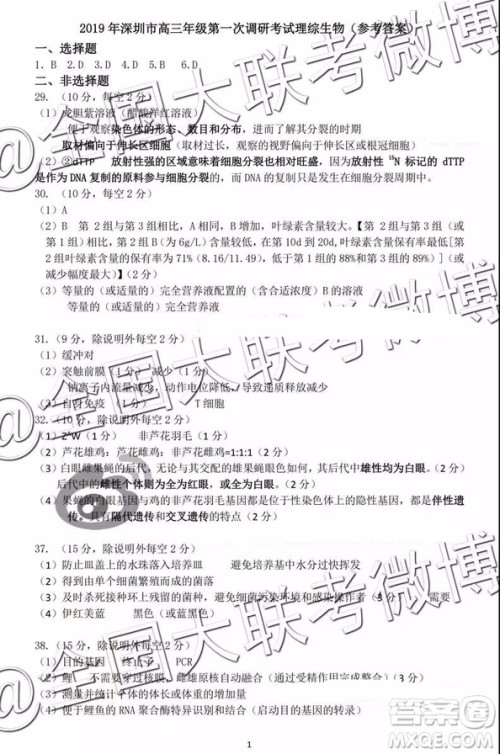 2019年深圳市高三年级第一次调研考试理综生物（参考答案）
一、选择题
1. B 2. D 3. D 4. B 5. D 6. D
二、非选择题
29.（10分，每空2分）
（1）龙胆紫溶液（醋酸洋红溶液）
便于观察染色体的形态、数目和分布，进而了解其分裂的时期
取材偏向于伸长区细胞（取材过长，观察的视野偏向于伸长区或根冠细胞）
（2）②dTTP 放射性强的区域意味着细胞分裂也相对旺盛，因为放射性 N 标记的 dTTP
是作为 DNA 复制的原料参与细胞分裂的，而 DNA 复制的细胞才具有细胞分裂周期中。
30.（10分，每空2分）
（1）A
（2）B 第 2 组与第 3 组相比，A、叶绿素含量较大。【第 2 组与第 3 组（或
第 1 组）相比，叶绿素含量较低，在第 10d 到 20d，叶绿素含量保有率最低[第
2 组叶绿素含量的保有率为71%（8.16/11.49），低于第1组的88%和第3组的89%]（或
减少幅度最大）】（2分）
（3）等量的（或适量的）完全营养液配置的（或含有完全营养的）B的溶液
等量的（或适量的）完全营养液
31.（9分，除说明外每空2分）
（1）缓冲对
（2）突触前膜（1分） 减少（1分）
钠离子内流量减少，动作电位降低，
（3）自身免疫（1分） T细胞
32.（10分，除说明外每空2分）
（1）W 非芦花羽毛（2分）
（2）芦花雄鸡：芦花雌鸡：非芦花雌鸡=1:1:1（2分）
（3）白眼雌果蝇的后代，无论与其交配的雄果蝇眼色基因如何，其后代中雄性均为白眼，
后代中的雌性个体则为全为红眼或一半红眼一半白眼。（2分）
（4）果蝇的白眼基因与鸡的非芦花羽毛基因都是位于性染色体上的隐性基因，都是伴性遗
传。具有隔代遗传和交叉遗传的特点（2分）
37.（15分，除说明外每空2分）
（1）防止皿盖上的水珠落入培养基 避免培养基中水分过快挥发
（2）得到由单个细胞繁殖而成的菌落
（3）及时杀死接种环上残留的菌种，避免 （2分） 需要
（4）伊红美蓝 黑色（或蓝色）
38.（15分，除说明外每空2分）
（1）目的基因 终止子 PCR
（2）鲤 不需要穿过核膜，雌雄原核自动融合（通过受精作用完成整合）（3分）
（3）测量并统计个体的体长或体重的增量
（4）便于鲤鱼的RNA聚合酶特异识别和结合（启动目的基因的转录）
1
@全国大联考微博
@全国大联考微博
答案圈
MXQE.COM